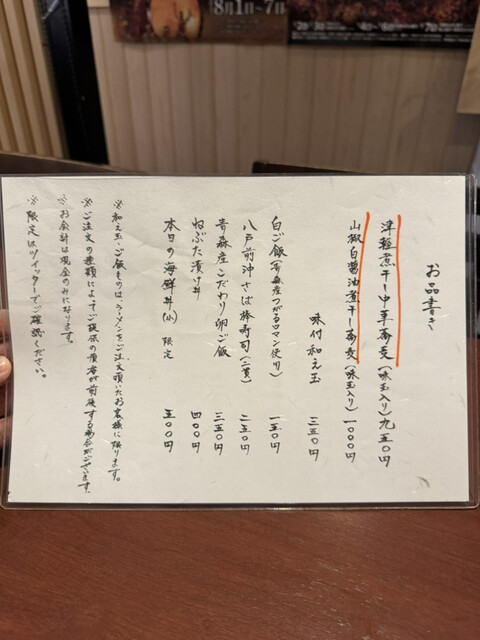 8月1日-7日
お品書き
津軽煮干し中華蕎麦(味玉入り)九五〇円
山椒白醤油煮干し蕎麦(味玉入り)一〇〇〇円
味付和え玉 三五〇円
白ご飯(青森産つがるロマン使用) 一五〇円
八戸前沖さば棒寿司(二貫) 二五〇円
青森産こだわり卵ご飯 三五〇円
ねぶた漬け丼 四〇〇円
本日の海鮮丼(小)限定 五〇〇円
※和え玉・ご飯ものは、ラーメンをご注文頂いたお客様に限ります。
※ご注文の種類によってご提供の順番が前後する場合がございます。
※お会計は現金のみになります。
※限定はツイッターでご確認ください。